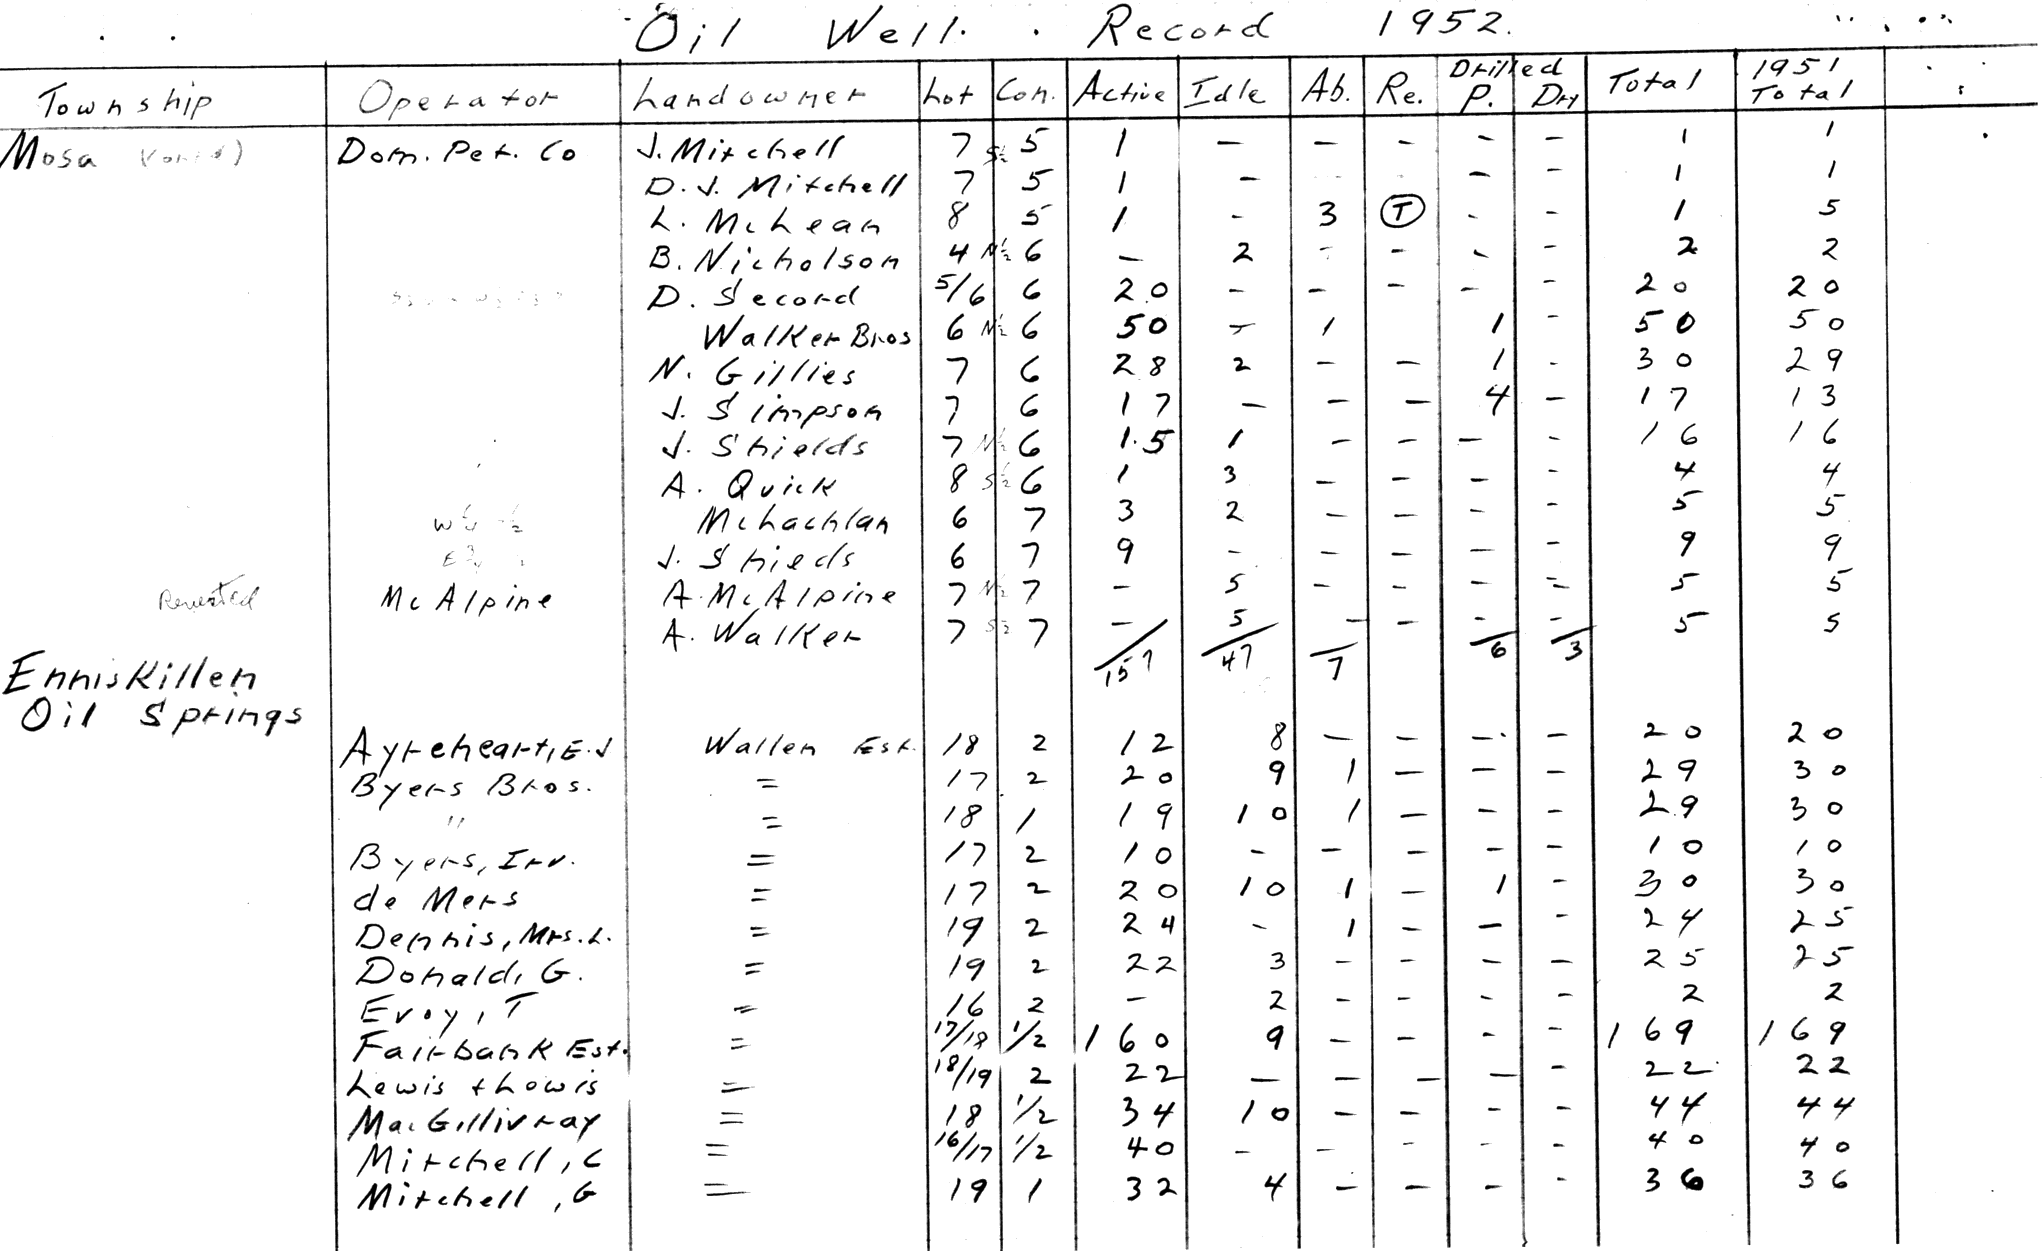 Oil Well Record 1952.
Township Operator Landowner Lot Con. Active Idle Ab. Re. Drilled P. Dry Total 1951 Total
Mosa (con'd) Dom. Pet. Co J. Mitchell 7 S½ 5 1 — — - - — 1 1
D. J. Mitchell 7 5 1 — - - — - 1 1
L. McLean 8 5 1 - 3 T - - 1 5
B. Nicholson 4 N½ 6 — 2 - - - - 2 2
D. Secord 5/6 6 20 - - - - - 20 20
Walker Bros 6 N½ 6 50 - 1 1 - 50 50
N. Gillies 7 6 28 2 - - 1 - 30 29
J. Simpson 7 6 17 — — — 4 — 17 13
J. Shields 7 N½ 6 15 1 - - — - 16 16
A. Quick 8 S½ 6 1 3 - - - - 4 4
McLachlan 6 7 3 2 - - - - 5 5
J. Shieds 6 7 9 - - - - - 9 9
Revested McAlpine A. McAlpine 7 N½ 7 - 5 - - - = 5 5
A. Walker 7 S½ 7 - 5 - - - - 5 5
157 47 7 6 3
Enniskillen
Oil Springs
Ayreheart, E.J Wallen Est. 18 2 12 8 — — — — 20 20
Byers Bros. = 17 2 20 9 1 — — — 29 30
" = 18 1 19 10 1 — — — 29 30
Byers, Irv. = 17 2 10 - - - - - 10 10
de Mers = 17 2 20 10 1 - 1 - 30 30
Dennis, Mrs. L. = 19 2 24 - 1 - — - 24 25
Donald, G. = 19 2 22 3 - - - — 25 25
Evoy, T = 16 2 - 2 - - - - 2 2
Fairbank Est. = 17/18 1/2 160 9 - - - - 169 169
Lewis + Lowis = 18/19 2 22 — — — — - 22 22
MacGillivray = 18 1/2 34 10 - - - - 44 44
Mitchell, C = 16/17 1/2 40 - - - - - 40 40
Mitchell, G = 19 1 32 4 - — - - 36 36